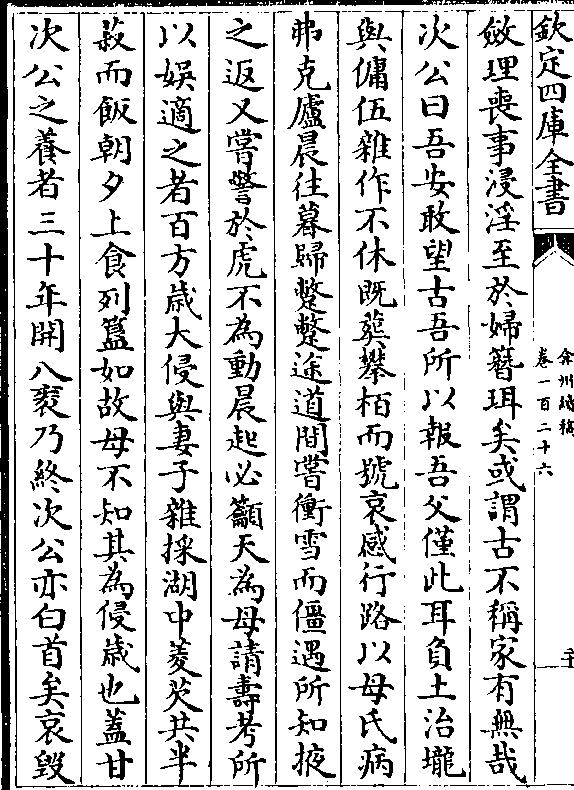 欽定四庫全書
弇州續稿
卷一百二十六
二十
斂理喪事浸淫至於婦簪珥矣或謂古不稱家有無哉
次公曰吾安敢望古吾所以報吾父僅此耳負土治壠
與傭伍雜作不休既葬攀栢而號哀感行路以母氏病
弗克廬晨往暮歸蹩蹩途道間嘗衝雪而僵遇所知掖
之返又嘗警於虎不為動晨起必籲天為母請壽考所
以娯適之者百方歳大侵與妻子雜採湖中菱芡共半
菽而飯朝夕上食列簋如故母不知其為侵歳也蓋甘
次公之養者三十年開八袠乃終次公亦白首矣哀毀